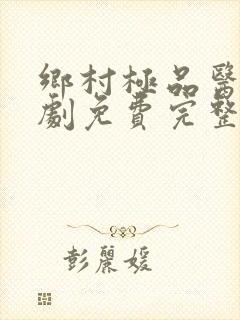 鄉村極品醫
劇免費完整
彭麗媛